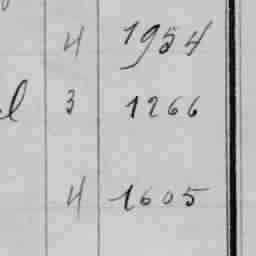 4 1954
l 3 1266
4 1605